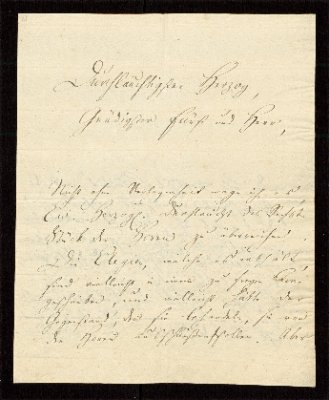 Durchlauchtigster Herzog,
Gnädigster Fürst und Herr,
Nicht ohne Verlegenheit wage ich es,
Ew. Herzogl. Durchlaucht das
Stück der Horen zu überreichen.
Die Elegien, welche es enthält,
sind vielleicht in einem zu freyen Tone
geschrieben, und vielleicht hätte der
Gegenstand, den sie behandeln, sie von
den Horen ausschließen sollen. Aber